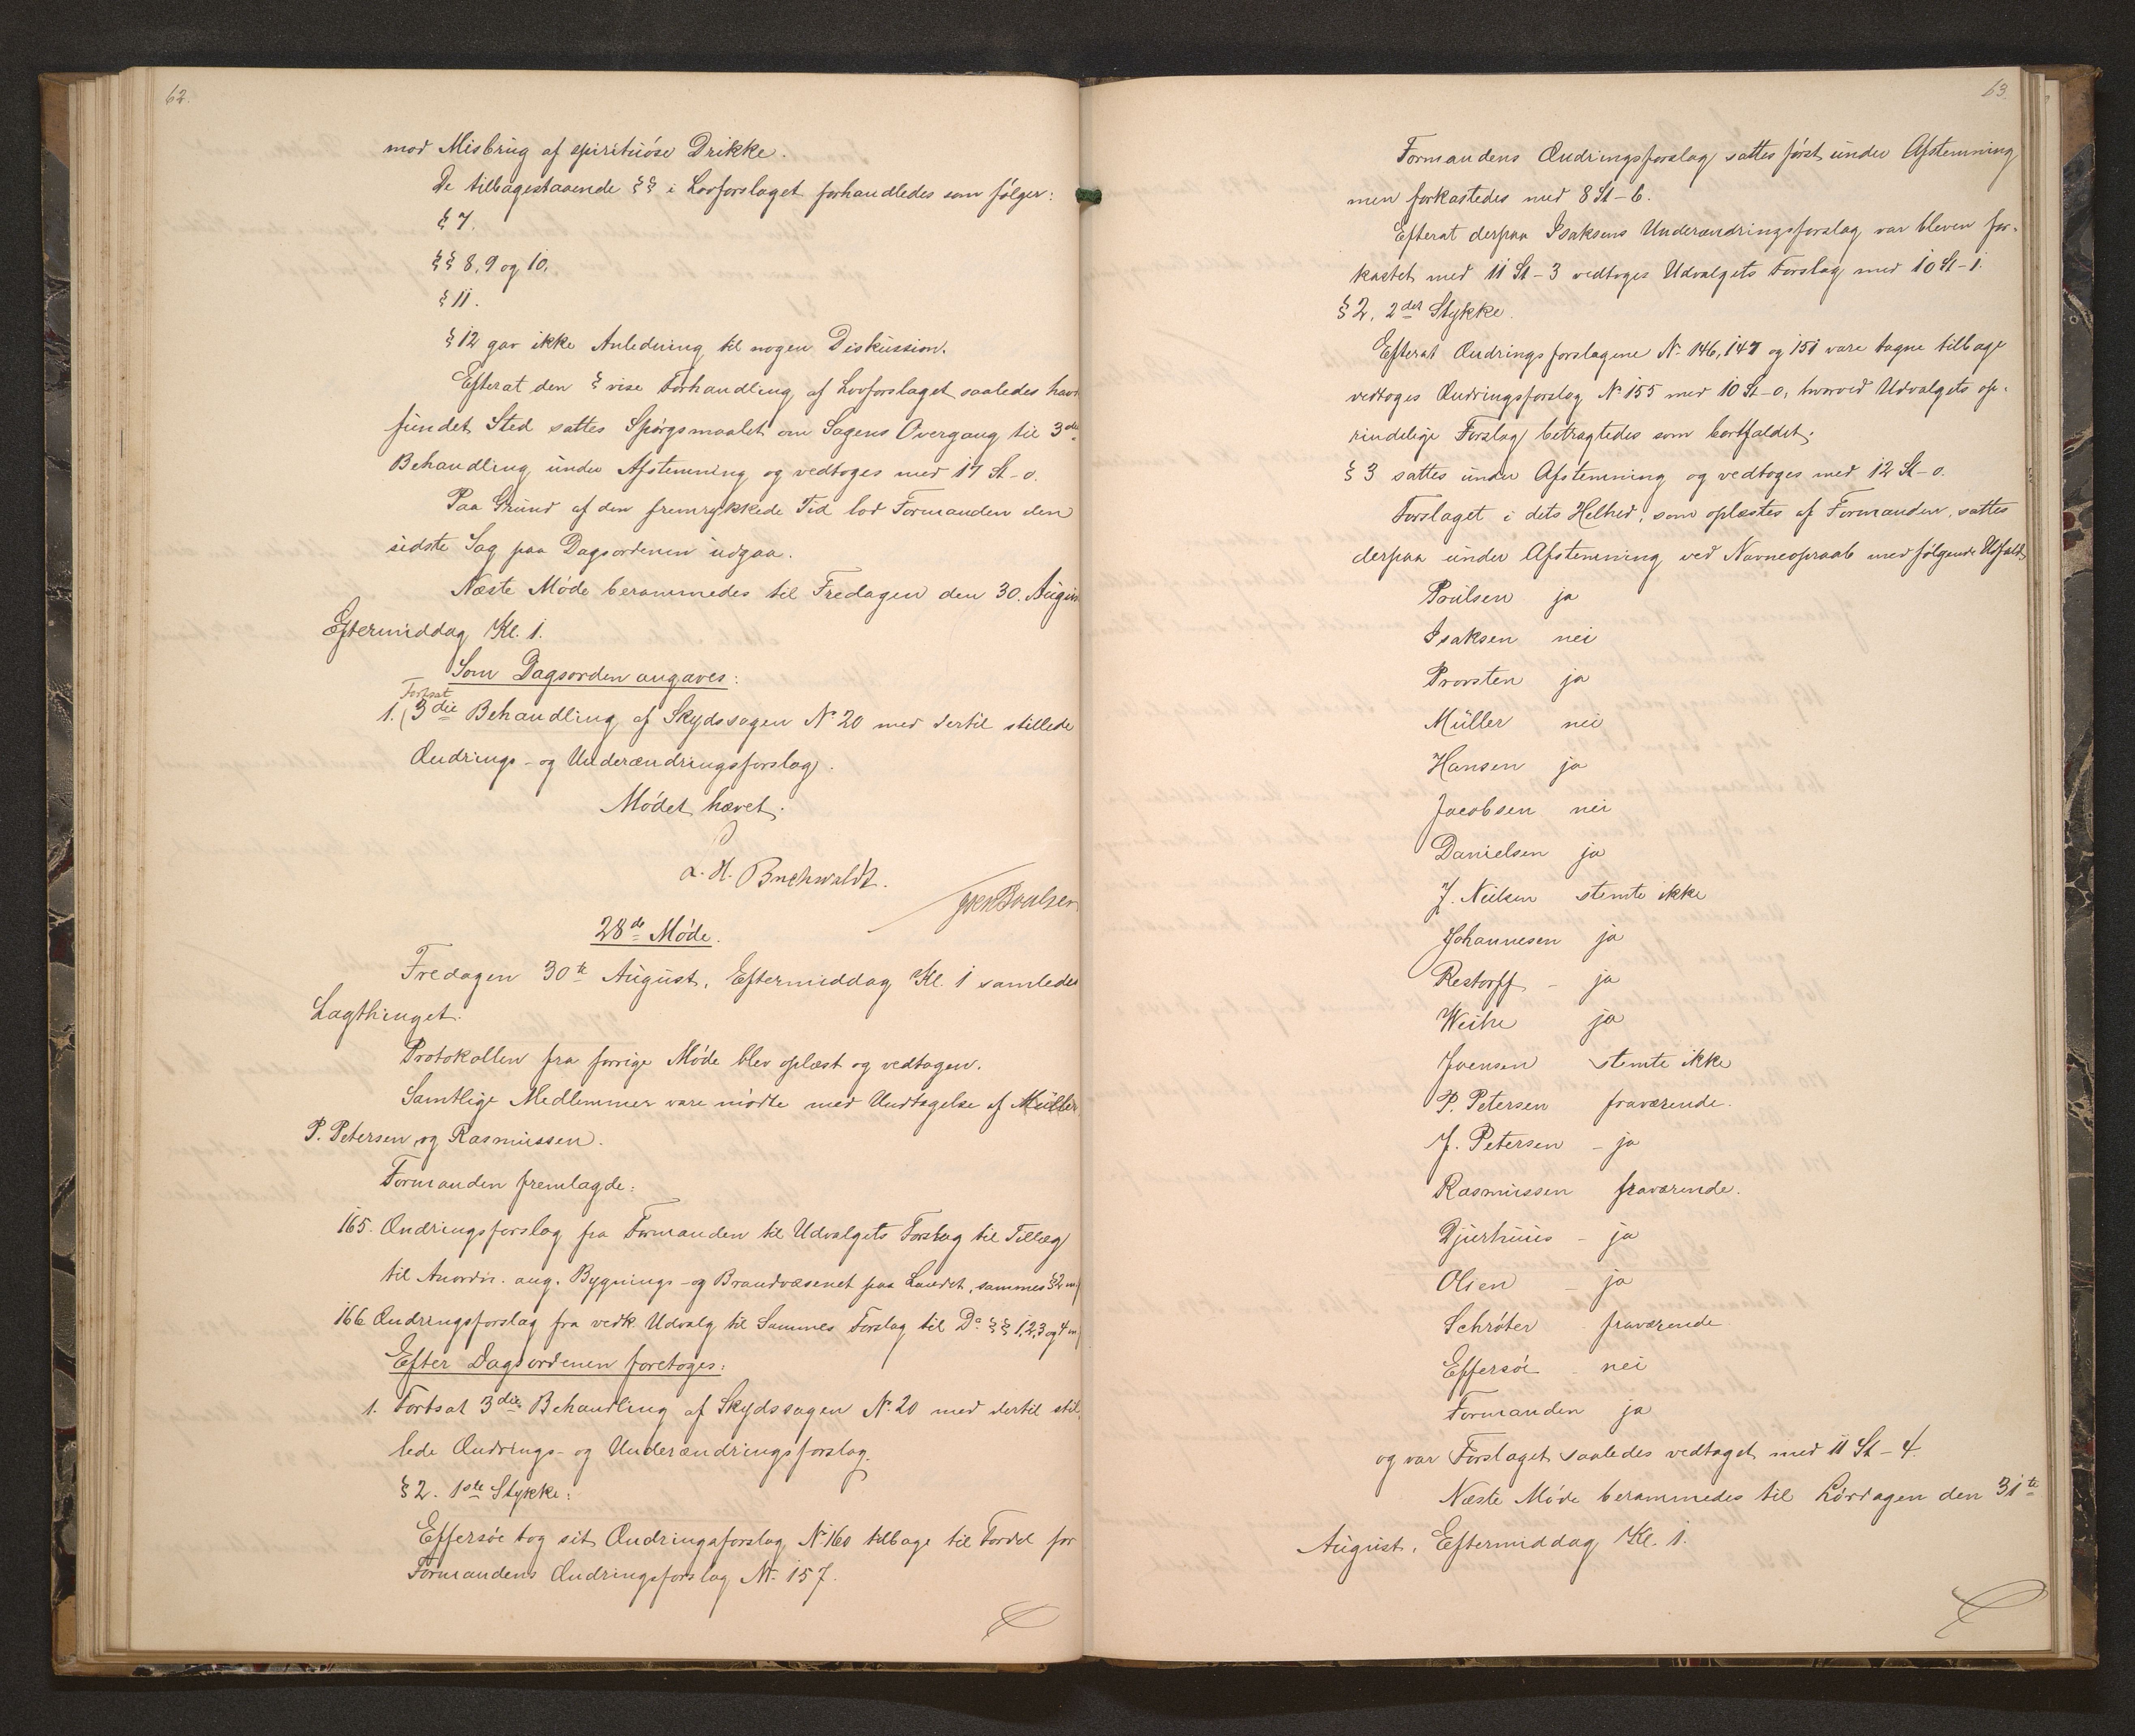 62.
mod Misbrug af spirituóse Drikke.
De tilbagestaaende §§ i Lovforslaget forhandledes som fólger:
§ 7.
§§ 8, 9 og 10.
§ 11.
§ 12 gav ikke Anledning til nogen Diskussion.
Efterat den § vise Forhandling af Lovforslaget saaledes havde
fundet Sted sattes Spórgsmaalet om Sagens Overgang til 3die
Behandling under Afstemning og vedtoges med 17 St - 0.
Paa Grund af den fremrykkede Tid lod Formanden den
sidste Sag paa Dagsordenen udgaa.
Næste Móde berammedes til Fredagen den 30. August
Eftermiddag Kl. 1.
Som Dagsorden angaves:
Fortsat
1. 3die Behandling af Skydssagen No 20 med dertil stillede
Ændrings- og Underændringsforslag.
Módet hævet.
L. H. Buchwaldt.
Joen Poulsen
28de Móde.
Fredagen 30te August, Eftermiddag Kl. 1 samledes
Lagthinget.
Protokollen fra forrige Móde blev oplæst og vedtagen.
Samtlige Medlemmer vare módte med Undtagelse af Müller
P. Petersen og Rasmussen.
Formanden fremlagde:
165. Ændringsforslag fra Formanden til Udvalgets Forslag til Tillæg
til Anordn. ang. Bygnings- og Brandvæsenet paa Landet, sammes § 2 m
166 Ændringsforslag fra vedk. Udvalg til Sammes Forslag til Do §§ 1, 2, 3 og 4 m
Efter Dagsordenen foretoges:
1. Fortsat 3die Behandling af Skydssagen No 20 med dertil stil-
lede Ændrings- og Underændringsforslag.
§ 2. 1ste Stykke:
Effersóe tog sit Ændringsforslag No 160 tilbage til Fordel for
Formandens Ændringsforslag No 157.
63.
Formandens Ændringsforslag sattes fórst under Afstemning
men forkastedes med 8 St - 6.
Efterat derpaa Isaksens Underændringsforslag var bleven for-
kastet med 11 St - 3 vedtoges Udvalgets Forslag med 10 St - 1.
§ 2, 2det Stykke.
Efterat Ændringsforslagene No 146, 147 og 151 vare tagne tilbage
vedtoges Ændringsforslag No 155 med 10 St - 0, hvorved Udvalgets op-
rindelige Forslag betragtedes som bortfaldet.
§ 3 sattes under Afstemning og vedtoges med 12 St - 0.
Forslaget i dets Helhed, som oplæstes af Formanden, sattes
derpaa under Afstemning ved Navneopraab med fólgende Udfald
Poulsen ja
Isaksen nei
Provsten ja
Müller nei
Hansen ja
Jacobsen nei
Danielsen ja
J. Nielsen stemte ikke
Johannesen ja
Restorff - ja
Weihe ja
Joensen stemte ikke
P. Petersen fraværende.
J. Petersen - ja
Rasmussen fraværende.
Djurhuus - ja
Olsen - ja
Schróter fraværende
Effersóe - nei
Formanden ja
og var Forslaget saaledes vedtaget med 11 St - 4.
Næste Móde berammedes til Lórdagen den 31te
August, Eftermiddag Kl. 1.